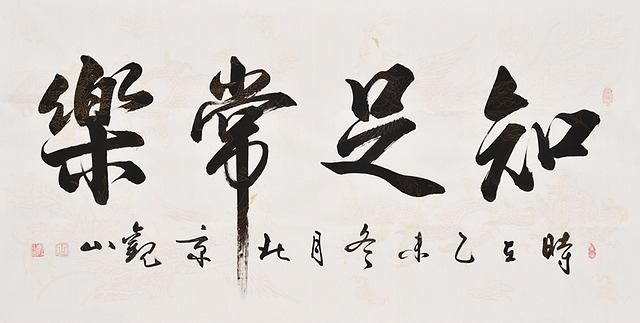 知足常樂
時在乙未冬月北京觀山